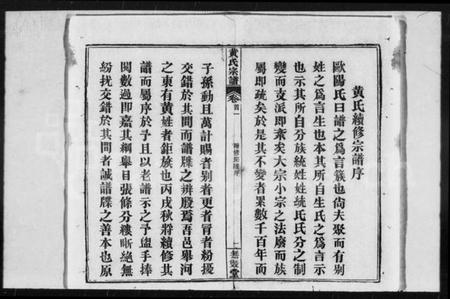 黃氏續修宗譜序
歐陽氏曰譜之為言簇也尙夫聚而有別
姓之為言生也本其所自生氏之為言示
也示其所自分族統姓姓統氏氏分之制
變而支派即紊矣大宗小宗之法廢而族
屬即疏矣於是其不變者累數千百年而
黃氏宗譜
卷首一
續修宗譜序
無毀堂
子孫動且萬計賜者別者更者冒者紛擾
交錯於其間而譜牒之辨殷焉吾邑畢河
之東有黃姓者鉅族也丙戌秋將續修其
譜而屬序於予且以老譜示之予盥手捧
閱數過即嘉其綱舉目張條分縷晰絕無
紛擾交錯於其間者誠譜牒之善本也原